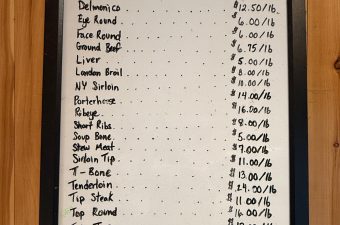 Delmonico . . . . . . . . . . . $12.50/lb.
Eye Round . . . . . . . . . . . $6.00/lb
Face Round . . . . . . . . . . . $6.00/lb
Ground Beef . . . . . . . . . . . $6.75/lb
Liver . . . . . . . . . . . $5.00/lb
London Broil . . . . . . . . . . . $8.00/lb
NY Sirloin . . . . . . . . . . . $14.00/lb
Porterhouse . . . . . . . . . . .
Ribeye . . . . . . . . . . . $16.00/lb
Short Ribs . . . . . . . . . . . $8.00/lb
Soup Bone . . . . . . . . . . . $5.00/lb
Stew Meat . . . . . . . . . . . $7.00/lb
Sirloin Tip . . . . . . . . . . . $11.00/lb
T-Bone . . . . . . . . . . . $13.00/lb
Tenderloin . . . . . . . . . . . $24.00/lb
Tip Steak . . . . . . . . . . . $11.00/lb
Top Round . . . . . . . . . . . $16.00/lb